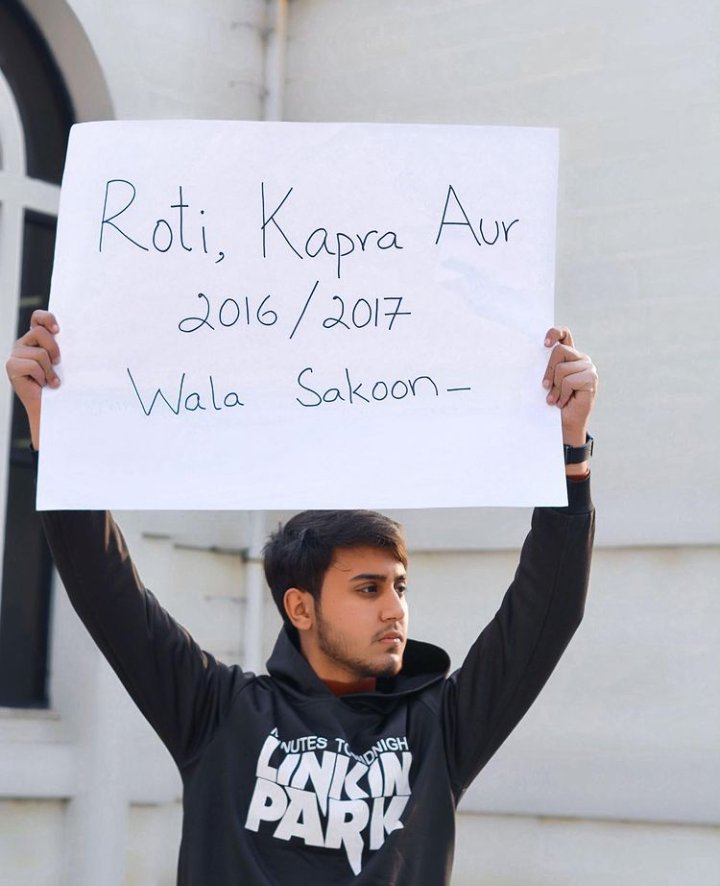 Roti, Kapra Aur
2016/2017
Wala Sakoon-
NUTES TO MIDNIGH
LINKIN
PARK